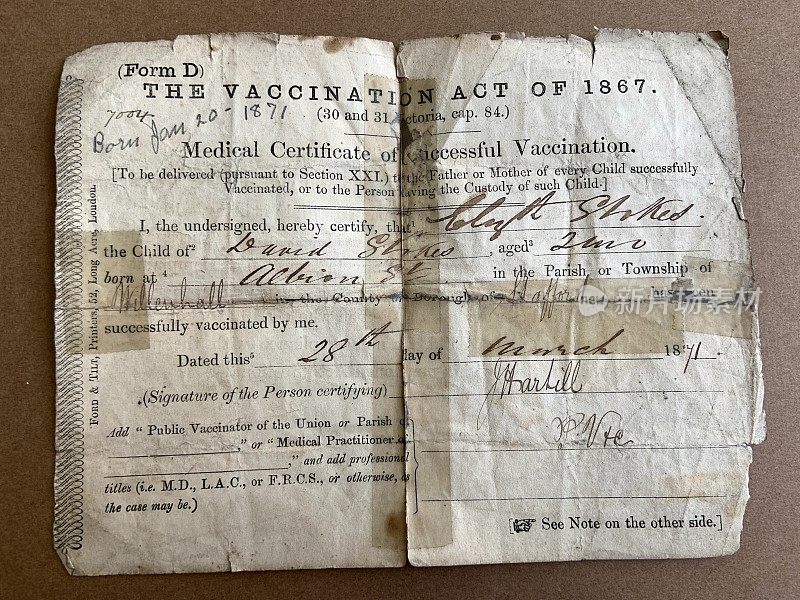 (Form D)
THE VACCINATION ACT OF 1867.
7004
Born Jan 20 - 1871
(30 and 31 Victoria, cap. 84.)
Medical Certificate of Successful Vaccination.
[To be delivered (pursuant to Section XXI.) to the Father or Mother of every Child successfully
Vaccinated, or to the Person having the Custody of such Child.]
I, the undersigned, hereby certify, that Elizth Stokes.
the Child of David Stokes, aged 2 mo
born at Albion St in the Parish, or Township of
Willenhall in the County or Borough of has been
successfully vaccinated by me.
Dated this 28th day of March 1871.
(Signature of the Person certifying) J Hartill
Add "Public Vaccinator of the Union or Parish of
," or "Medical Practitioner of
," and add professional
titles (i.e. M.D., L.A.C., or F.R.C.S., or otherwise, as
the case may be.)
[☞ See Note on the other side.]
Printers, 52, Long Acre, London.
新片场素材